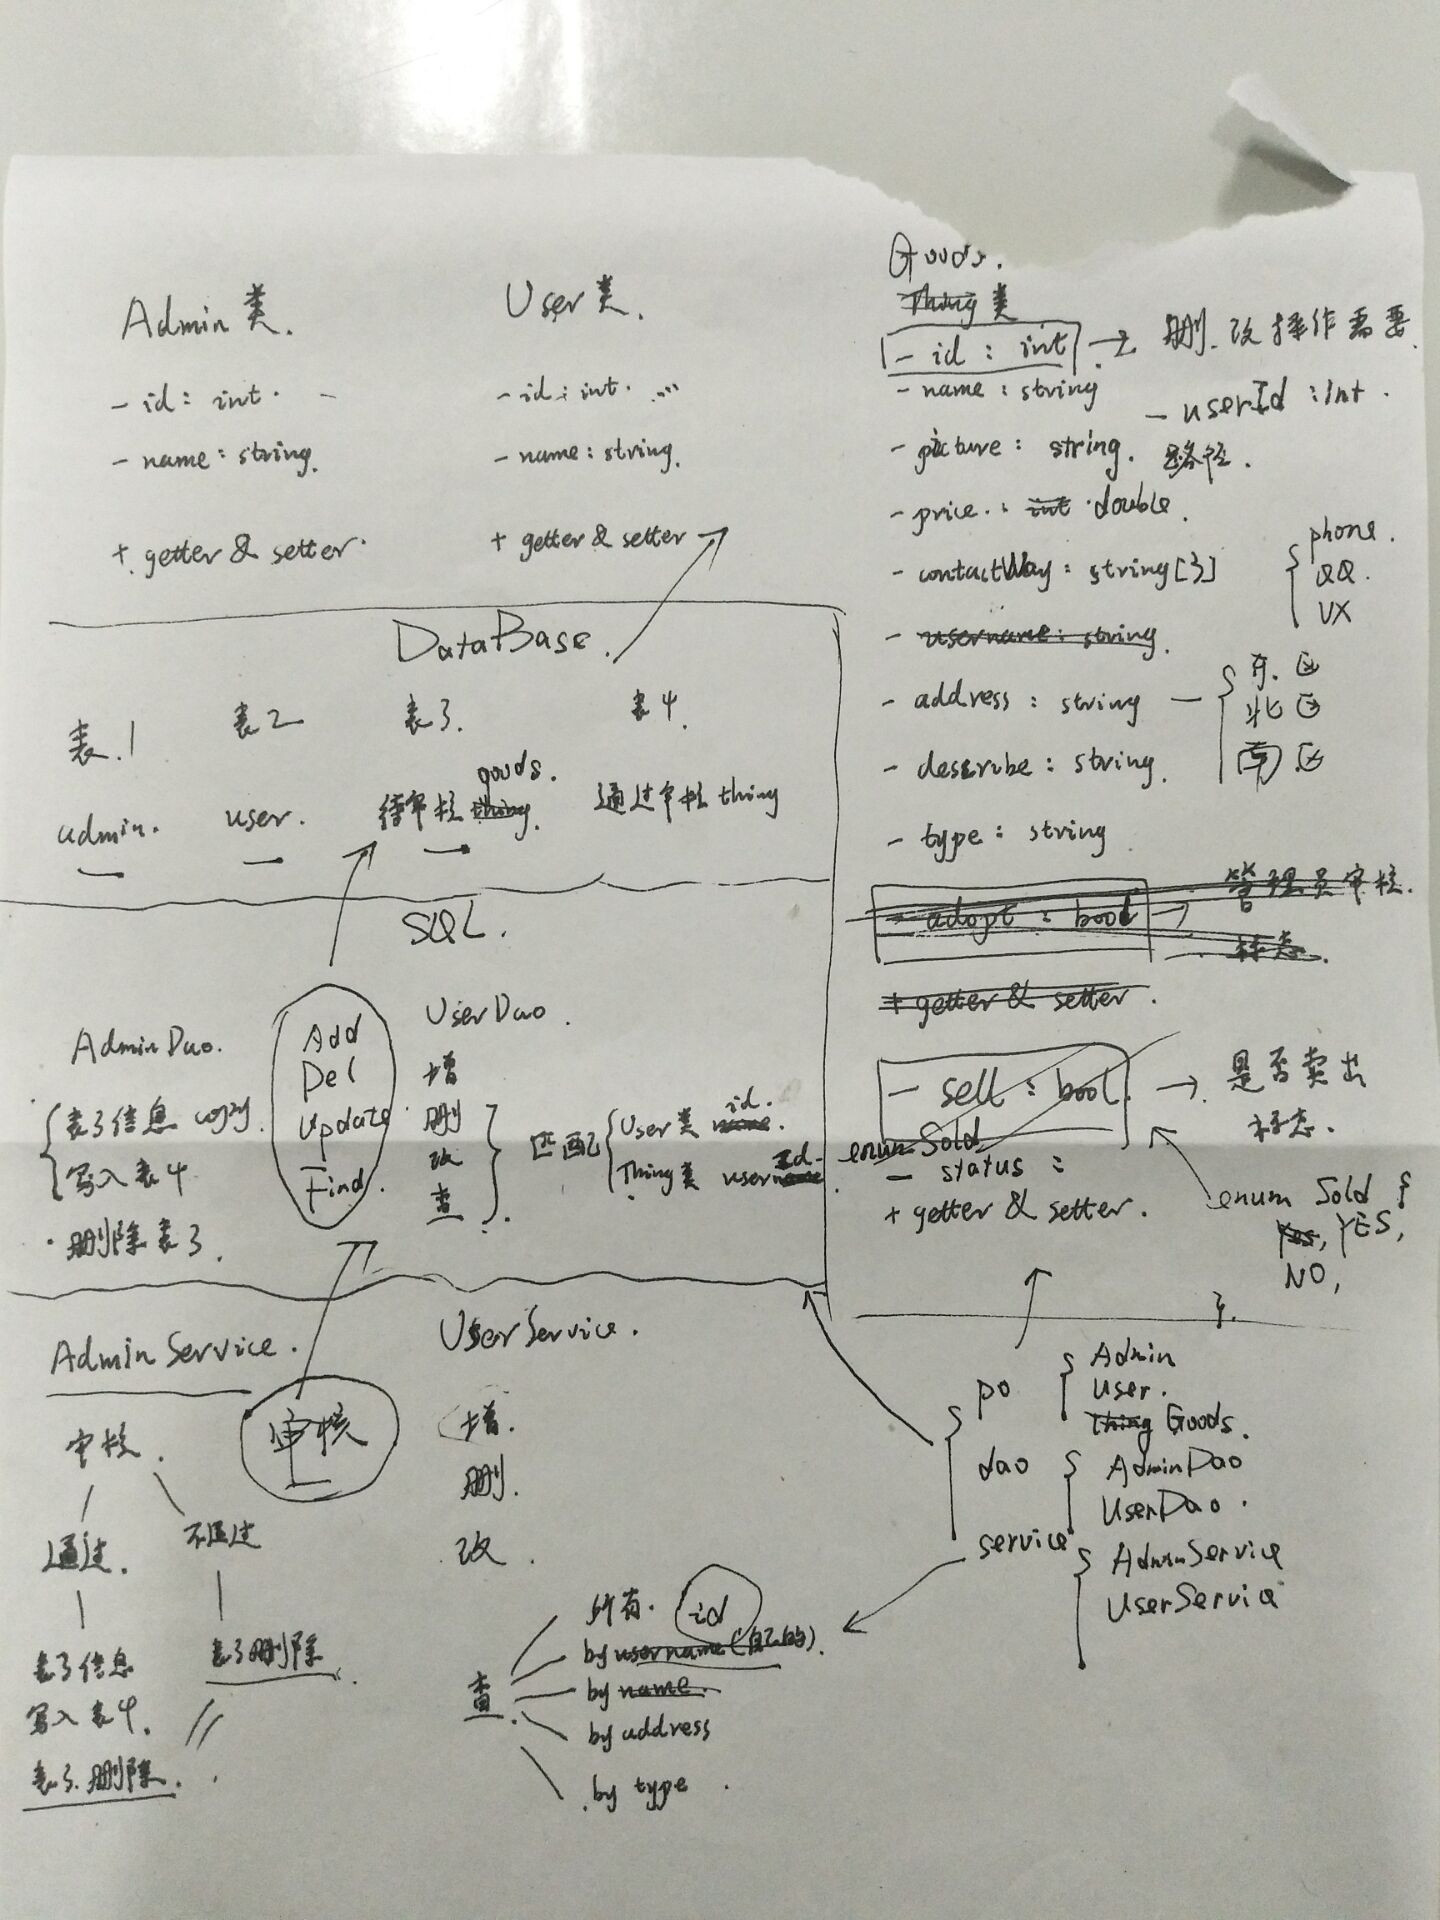 Admin类.
- id: int.
- name: string.
+ getter & setter.
User类.
- id: int. ...
- name: string.
+ getter & setter
Goods.
Thing类
- id : int → 删.改操作需要.
- name : string
- userId : int.
- picture : string. 路径.
- price : int double.
- contactWay : string[3]
phone.
QQ.
VX
- username : string.
- address : string
东.区
北区
南区
- describe : string.
- type : string
- adopt : bool → 管理员审核.
标志.
+ getter & setter.
- sell : bool. → 是否卖出
标志.
enum Sold
- status :
+ getter & setter.
enum Sold {
Yes, YES,
NO,
}.
DataBase.
表.1
表2
表3.
表4.
admin.
user.
待审核 thing.
goods.
通过审核 thing
SQL.
AdminDao.
表3信息 copy.
写入表4
·删除表3.
Add
Del
Update
Find.
UserDao.
增
删
改
查.
匹配
User类 name.
id.
Thing类 username.
Id.
AdminService.
审核.
通过.
不通过
表3信息
写入表4.
表3.删除.
表3删除
审核
UserService.
增.
删.
改.
查.
所有.
id
by username (自己的).
by name.
by address
by type.
po
Admin
User.
Thing Goods.
dao
AdminDao
UserDao.
service
AdminService
UserService